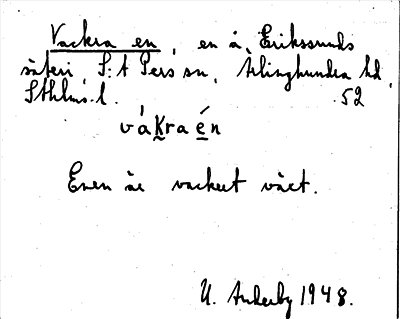 Vackra en, en å, Erikssunds
säteri, S:t Pers sn, Ärlinghundra hd,
Sthlms l. 52
vákraén
Enen är vackert växt.
U. Ankerby 1948.